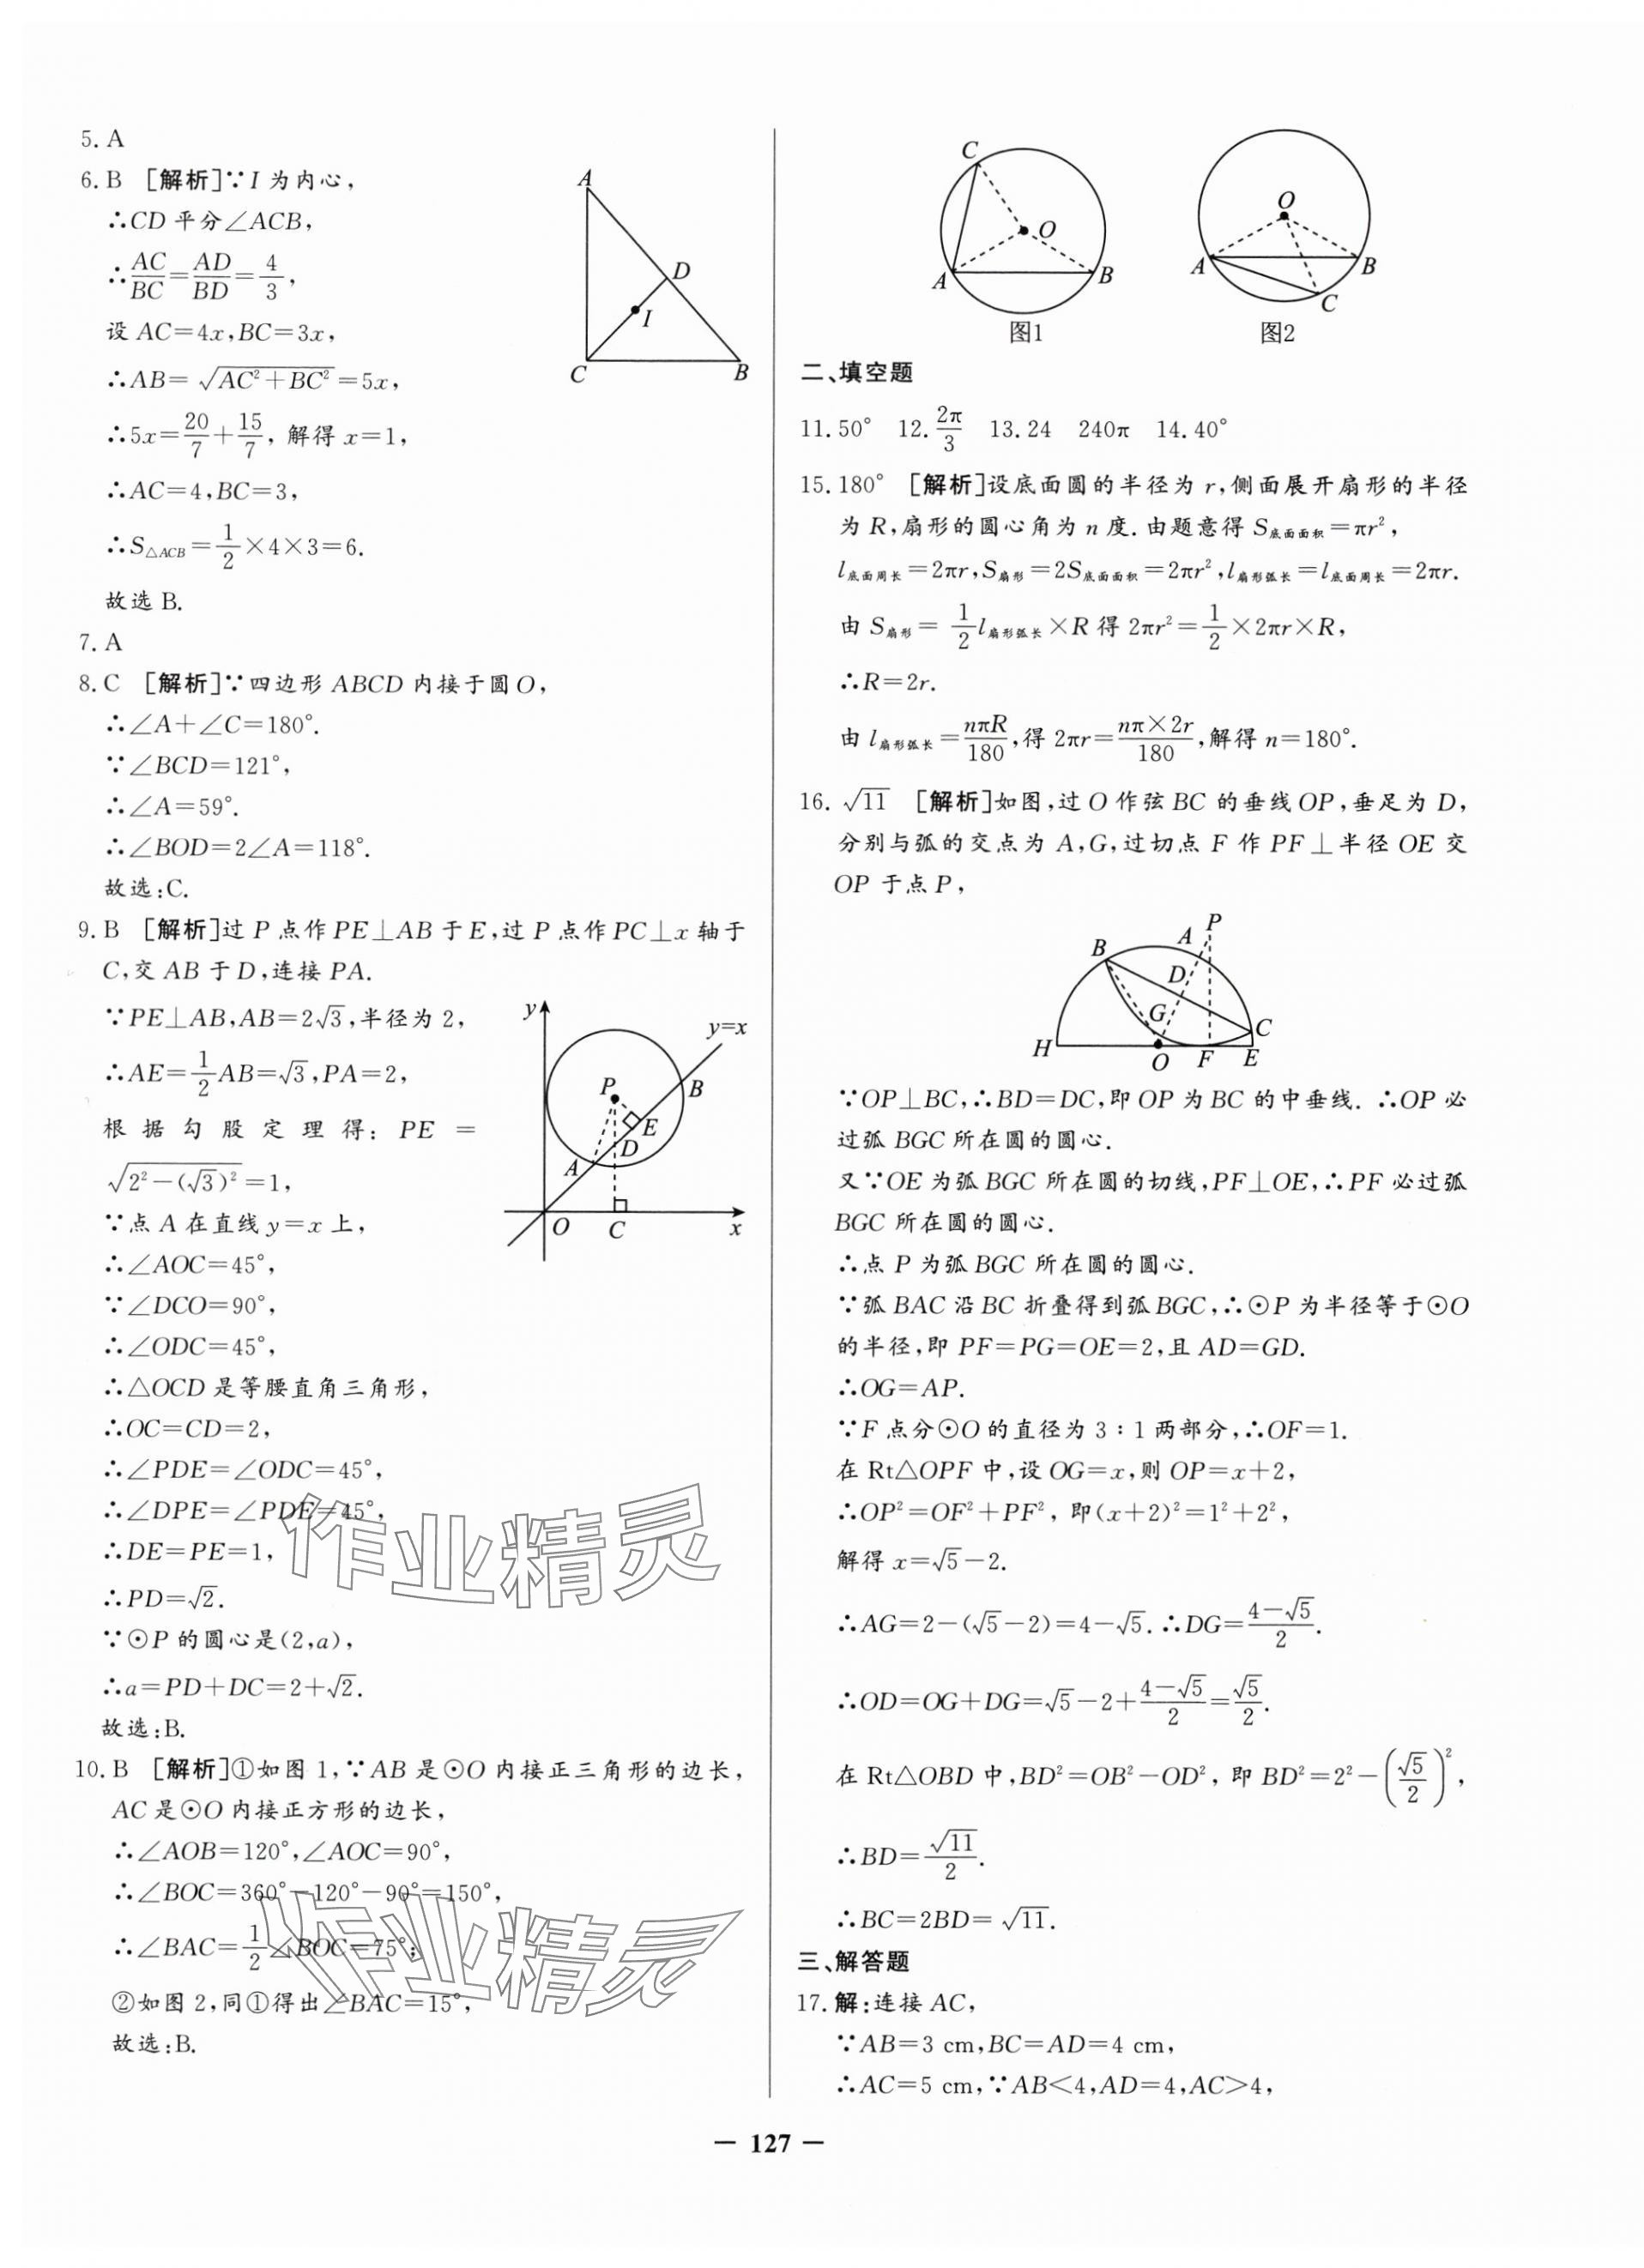 5. A
6. B [解析]∵I 为内心,
∴CD 平分∠ACB,
∴AC/BC=AD/BD=4/3,
设 AC=4x,BC=3x,
∴AB=√(AC²+BC²)=5x,
∴5x=20/7+15/7, 解得 x=1,
∴AC=4,BC=3,
∴S△ACB=1/2×4×3=6.
故选 B.
A
D
I
C
B
7. A
8. C [解析]∵四边形 ABCD 内接于圆 O,
∴∠A+∠C=180°.
∵∠BCD=121°,
∴∠A=59°.
∴∠BOD=2∠A=118°.
故选:C.
9. B [解析]过 P 点作 PE⊥AB 于 E,过 P 点作 PC⊥x 轴于
C,交 AB 于 D,连接 PA.
∵PE⊥AB,AB=2√3,半径为 2,
∴AE=1/2AB=√3,PA=2,
根据勾股定理得: PE =
√(2²-(√3)²)=1,
∵点 A 在直线 y=x 上,
∴∠AOC=45°,
∵∠DCO=90°,
∴∠ODC=45°,
∴△OCD 是等腰直角三角形,
∴OC=CD=2,
∴∠PDE=∠ODC=45°,
∴∠DPE=∠PDE=45°,
∴DE=PE=1,
∴PD=√2.
∵⊙P 的圆心是(2,a),
∴a=PD+DC=2+√2.
故选:B.
y
y=x
P
B
E
D
A
O
C
x
10. B [解析]①如图 1,∵AB 是⊙O 内接正三角形的边长,
AC 是⊙O 内接正方形的边长,
∴∠AOB=120°,∠AOC=90°,
∴∠BOC=360°-120°-90°=150°,
∴∠BAC=1/2∠BOC=75°;
②如图 2,同①得出∠BAC=15°,
故选:B.
作业精灵
作业精灵
C
O
A
B
图1
O
A
B
C
图2
二、填空题
11. 50° 12. 2π/3 13. 24 240π 14. 40°
15. 180° [解析]设底面圆的半径为 r,侧面展开扇形的半径
为 R,扇形的圆心角为 n 度. 由题意得 S底面面积=πr²,
l底面周长=2πr,S扇形=2S底面面积=2πr²,l扇形弧长=l底面周长=2πr.
由 S扇形=1/2l扇形弧长×R 得 2πr²=1/2×2πr×R,
∴R=2r.
由 l扇形弧长=nπR/180,得 2πr=nπ×2r/180,解得 n=180°.
16. √11 [解析]如图,过 O 作弦 BC 的垂线 OP,垂足为 D,
分别与弧的交点为 A,G,过切点 F 作 PF⊥半径 OE 交
OP 于点 P,
P
A
B
D
G
C
H
O
F
E
∵OP⊥BC,∴BD=DC,即 OP 为 BC 的中垂线. ∴OP 必
过弧 BGC 所在圆的圆心.
又∵OE 为弧 BGC 所在圆的切线,PF⊥OE,∴PF 必过弧
BGC 所在圆的圆心.
∴点 P 为弧 BGC 所在圆的圆心.
∵弧 BAC 沿 BC 折叠得到弧 BGC,∴⊙P 为半径等于⊙O
的半径,即 PF=PG=OE=2,且 AD=GD.
∴OG=AP.
∵F 点分⊙O 的直径为 3:1 两部分,∴OF=1.
在 Rt△OPF 中,设 OG=x,则 OP=x+2,
∴OP²=OF²+PF²,即(x+2)²=1²+2²,
解得 x=√5-2.
∴AG=2-(√5-2)=4-√5. ∴DG=(4-√5)/2.
∴OD=OG+DG=√5-2+(4-√5)/2=√5/2.
在 Rt△OBD 中,BD²=OB²-OD²,即 BD²=2²-(√5/2)²,
∴BD=√11/2.
∴BC=2BD=√11.
三、解答题
17. 解:连接 AC,
∵AB=3 cm,BC=AD=4 cm,
∴AC=5 cm,∵AB<4,AD=4,AC>4,
— 127 —